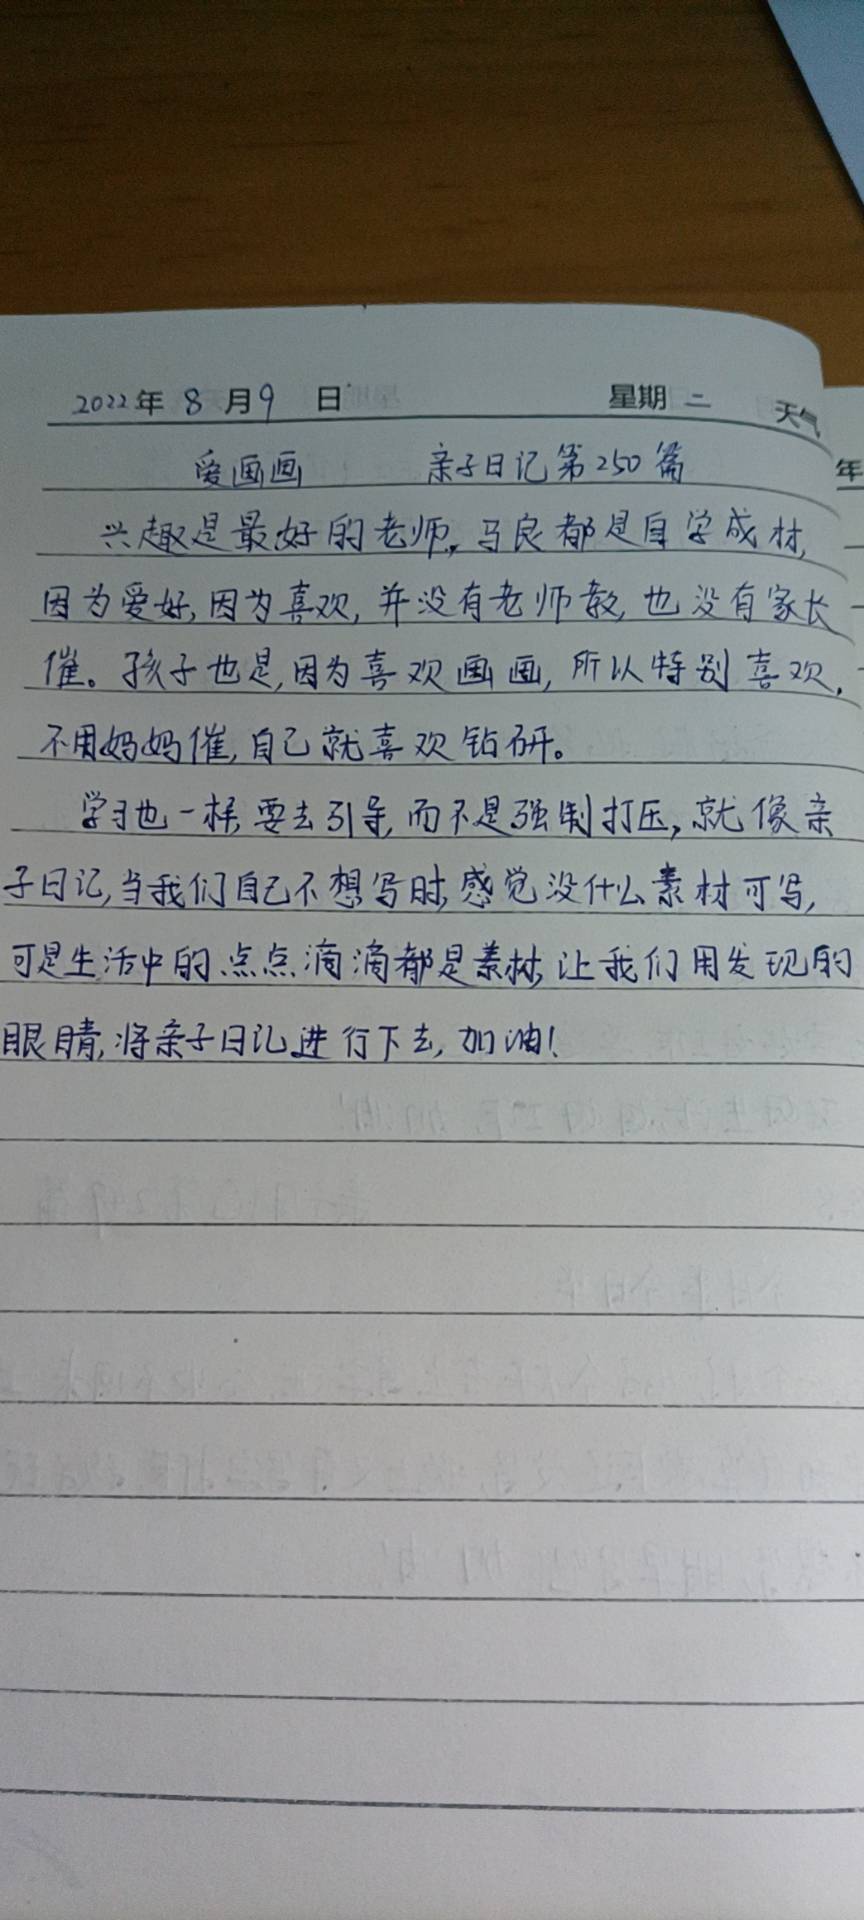 2022年 8 月 9 日 星期 二 天气
爱画画 亲子日记第250篇
年
兴趣是最好的老师,马良都是自学成材,
因为爱好,因为喜欢,并没有老师教,也没有家长
催。孩子也是,因为喜欢画画,所以特别喜欢,
不用妈妈催,自己就喜欢钻研。
学习也一样,要去引导,而不是强制打压,就像亲
子日记,当我们自己不想写时,感觉没什么素材可写,
可是生活中的点点滴滴都是素材,让我们用发现的
眼睛,将亲子日记进行下去,加油!